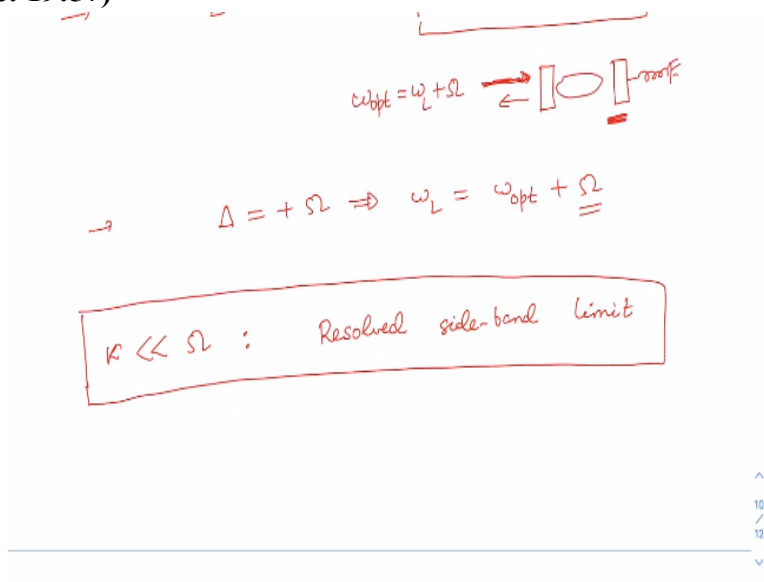 ω_opt = ω_L + Ω
→ Δ = + Ω ⇒ ω_L = ω_opt + Ω
κ << Ω : Resolved side-band limit
10
/
12